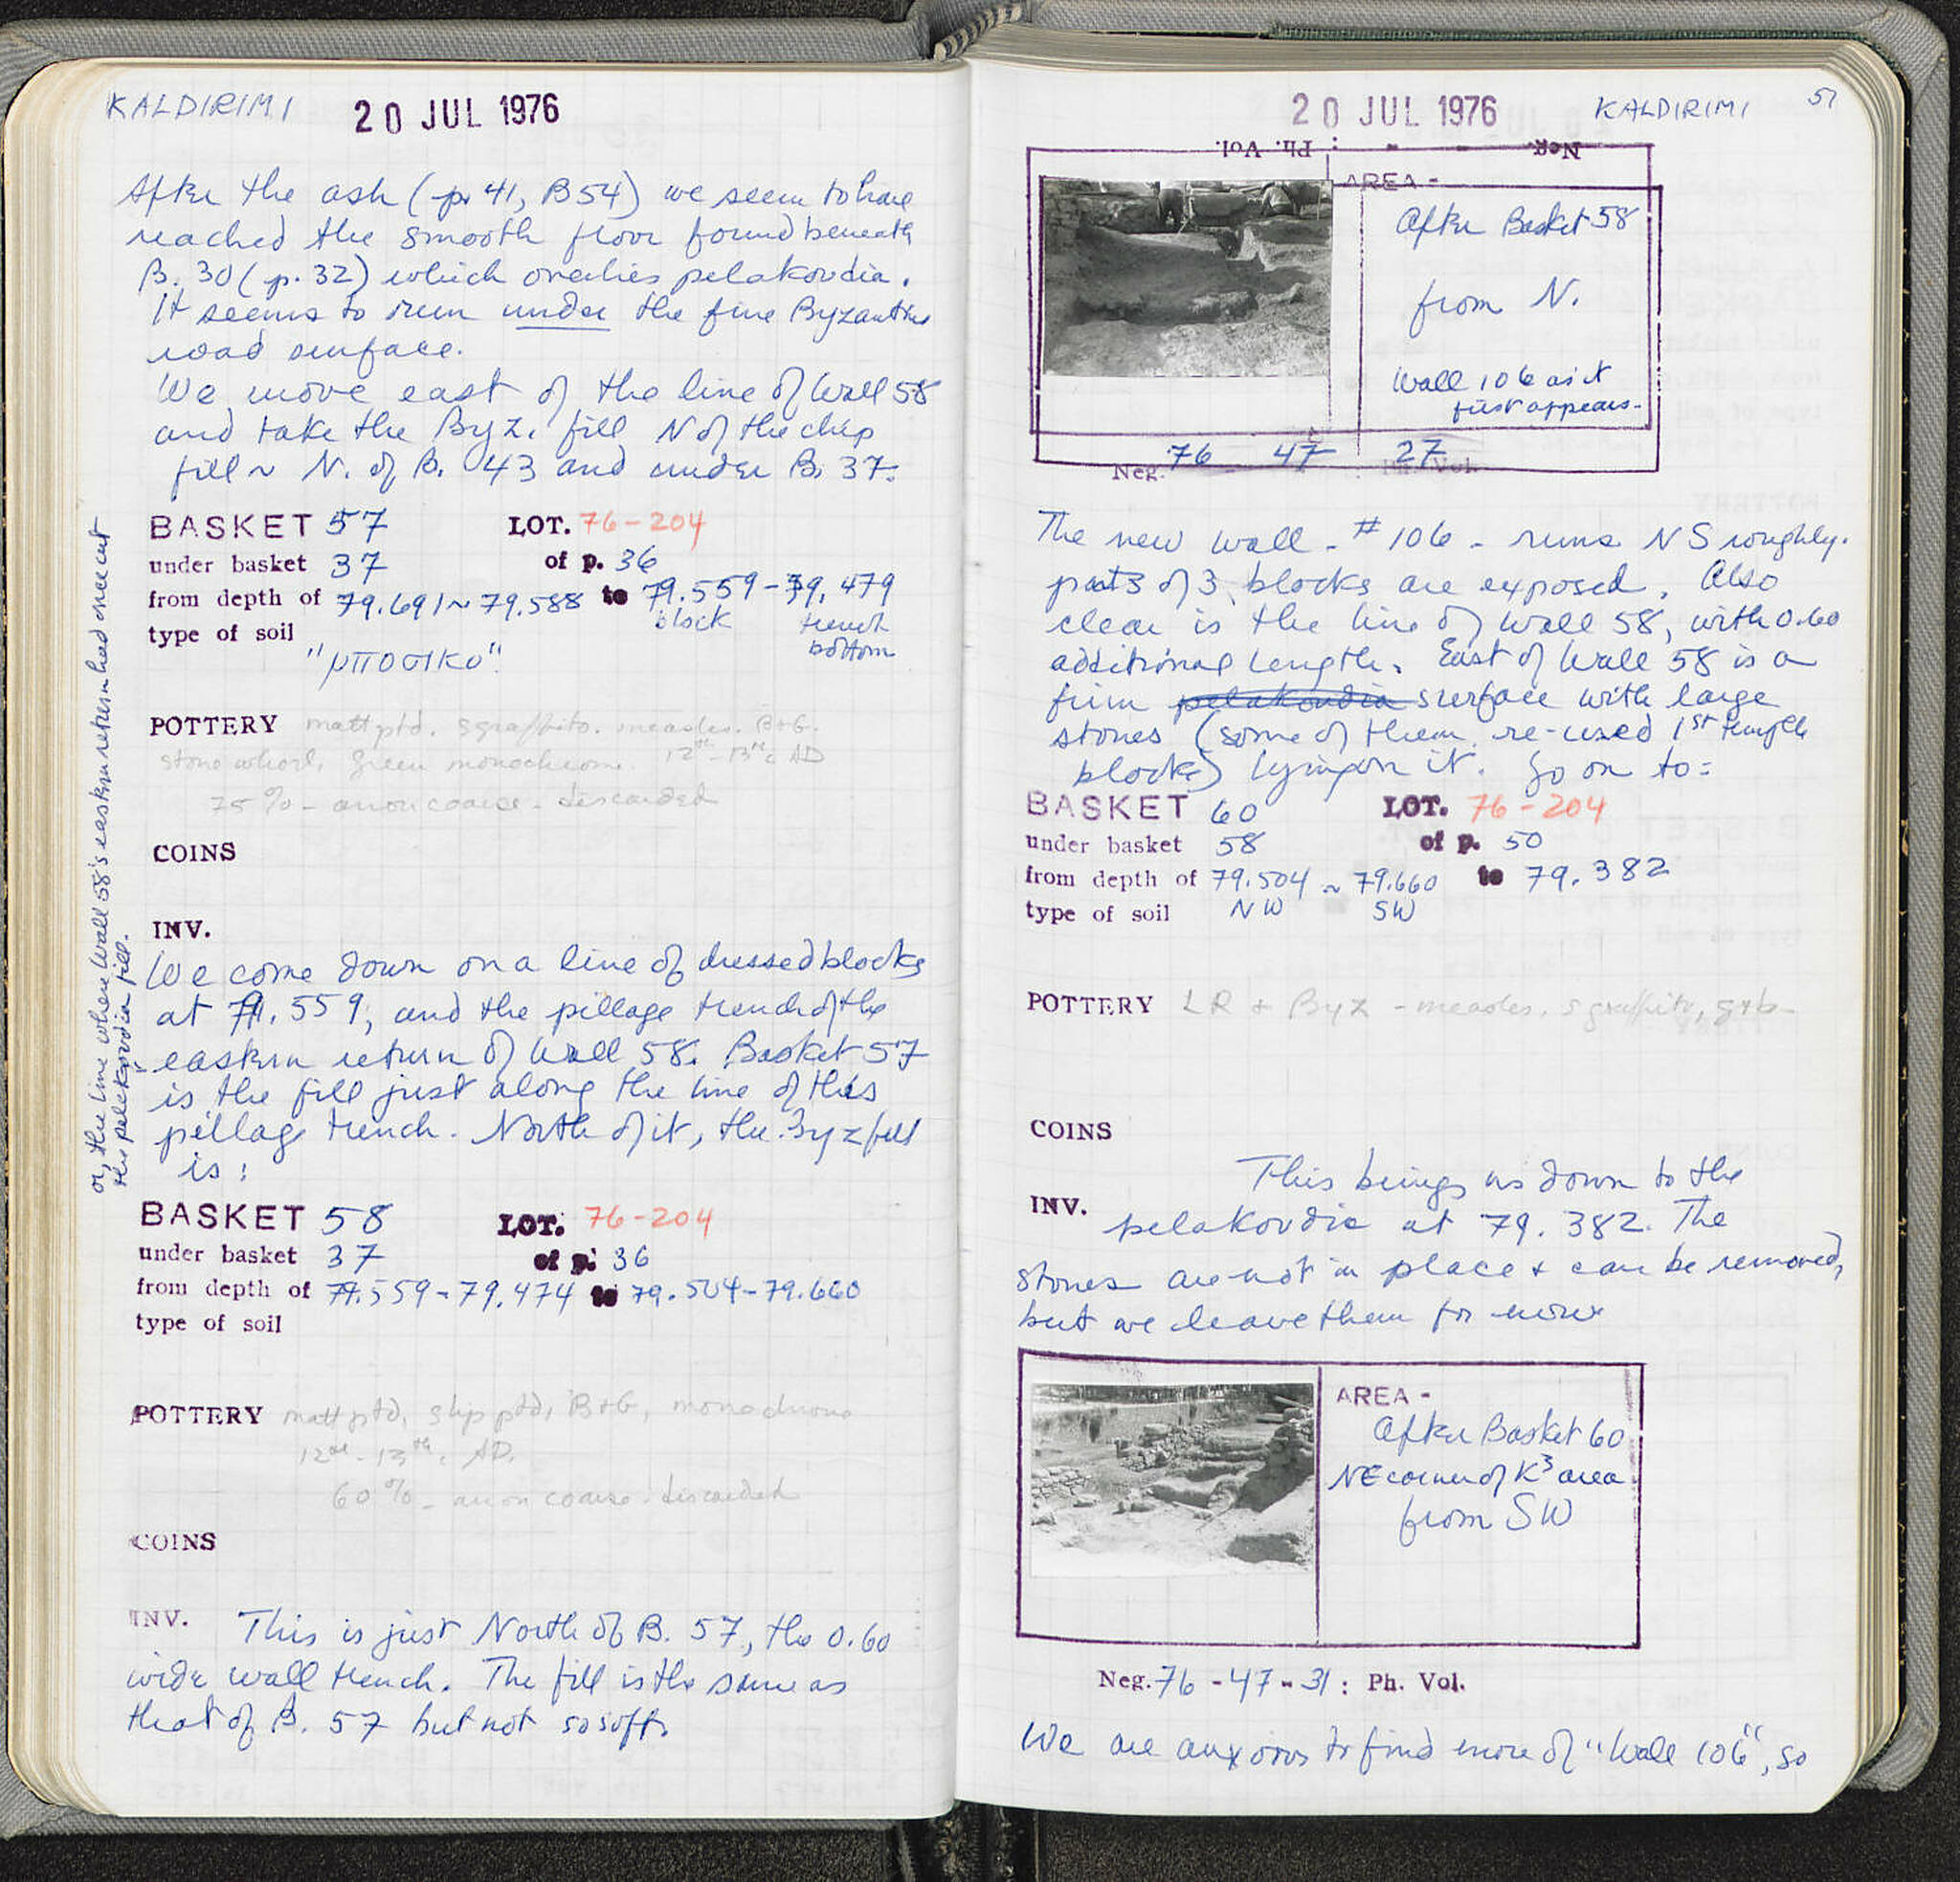 KALDIRIMI 20 JUL 1976
After the ash (p. 41, B54) we seem to have
reached the smooth floor found beneath
B. 30 (p. 32) which overlies pelakoudia.
It seems to run under the fine Byzantine
road surface.
We move east of the line of Wall 58
and take the Byz. fill N of the chip
fill ~ N. of B. 43 and under B. 37.
BASKET 57 LOT. 76-204
under basket 37 of p. 36
from depth of 79.691 ~ 79.588 to 79.559 - 79.479
block trench
bottom
type of soil
"μποσικο"
POTTERY matt ptd. sgraffito. measles. B+G.
stone whorl. Green monochrome. 12th - 13th c AD
75% - anon coarse - discarded
COINS
INV.
We come down on a line of dressed blocks
at 79.559, and the pillage trench of the
eastern return of Wall 58. Basket 57
is the fill just along the line of this
pillage trench. North of it, the Byz fill
is:
or, the line where Wall 58's eastern return had once cut
this pelekoudia fill.
BASKET 58 LOT. 76-204
under basket 37 of p. 36
from depth of 79.559 - 79.474 to 79.504 - 79.660
type of soil
POTTERY matt ptd, slip ptd, B+G, monochrome
12th - 13th c AD.
60% - anon coarse - discarded
COINS
INV. This is just North of B. 57, the 0.60
wide wall trench. The fill is the same as
that of B. 57 but not so soft.
20 JUL 1976 KALDIRIMI 51
Neg. - - : Ph. Vol.
AREA -
After Basket 58
from N.
Wall 106 as it
first appears.
Neg. 76 47 27 Ph. Vol.
The new wall - #106 - runs NS roughly.
parts of 3 blocks are exposed. Also
clear is the line of Wall 58, with 0.60
additional length. East of Wall 58 is a
firm pelakoudia surface with large
stones (some of them re-used 1st temple
blocks) lying on it. Go on to:
BASKET 60 LOT. 76-204
under basket 58 of p. 50
from depth of 79.504 ~ 79.660 to 79.382
type of soil NW SW
POTTERY LR + Byz - measles, sgraffito, g+b
COINS
This brings us down to the
INV. pelakoudia at 79.382. The
stones are not in place & can be removed,
but we leave them for now
AREA -
After Basket 60
NE corner of K3 area
from SW
Neg. 76 - 47 - 31 : Ph. Vol.
We are anxious to find more of "Wall 106", so